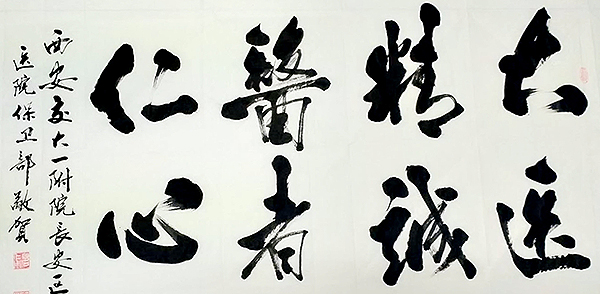 大医
精誠
醫者
仁心
西安交大一附院长安区
医院保卫部敬贺